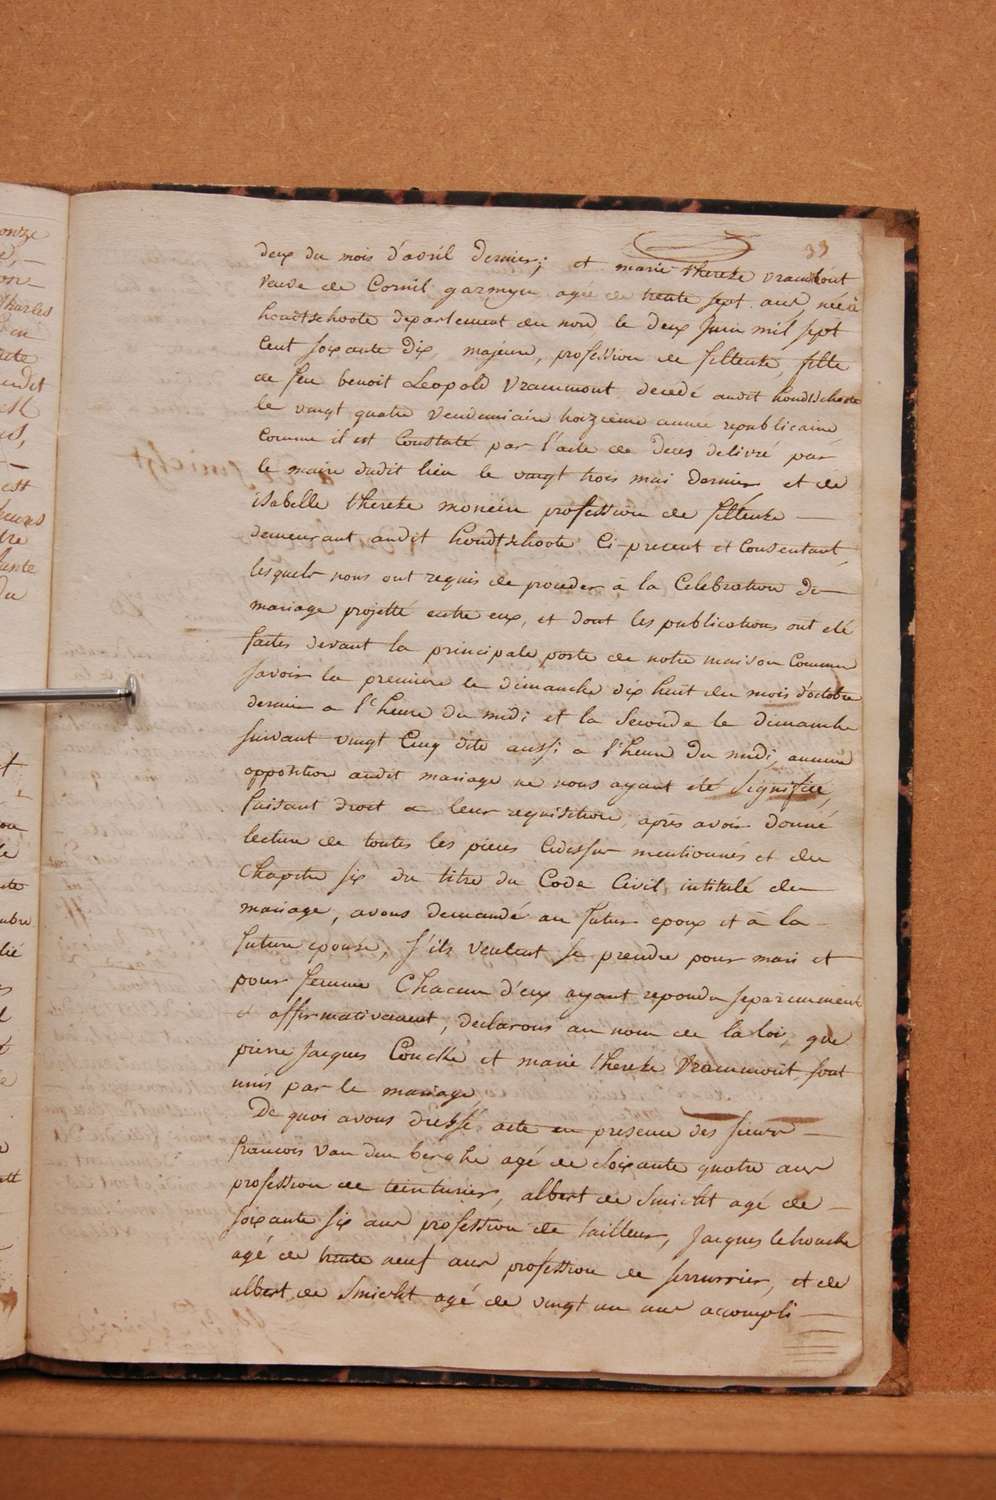 33
deux du mois d'avril dernier; et marie therese vrammout
veuve de Cornil garmyn agée de trente sept ans, née à
hondtschoote departement du nord le deux juin mil sept
cent soixante dix, majeure, profession de fileuse, fille
de feu benoit Leopold Vrammout, decedé audit hondtschoote
le vingt quatre vendemiaire treizieme année republicaine
comme il est constaté par l'acte de deces delivré par
le maire dudit lieu le vingt trois mai dernier et de
isabelle therese monein profession de fileuse —
demeurant audit hondtschoote ci-present et consentant,
lesquels nous ont requis de proceder à la celebration du —
mariage projetté entre eux, et dont les publications ont été
faites devant la principale porte de notre maison commune
savoir la premiere le dimanche dix huit du mois d'octobre
dernier a l'heure du midi et la seconde le dimanche
suivant vingt cinq dito aussi a l'heure du midi, aucune
opposition audit mariage ne nous ayant eté signifiée,
faisant droit a leur requisition, après avoir donné
lecture de toutes les pieces cidessus mentionnés et du
chapitre six du titre du Code Civil, intitulé du —
mariage, avons demandé au futur epoux et à la —
future epouse, s'ils veulent se prendre pour mari et
pour femme chacun d'eux ayant repondu separemment
et affirmativement, declarons au nom de la loi, que
pierre jacques Coucke et marie therese Vrammout, sont
unis par le mariage,
De quoi avons dressé acte en presence des sieurs —
francois Van den berghe agé de soixante quatre ans
profession de teinturier, albert de Smicht agé de —
soixante six ans profession de tailleur, jacques lehoucke
agé de trente neuf ans profession de serrurrier, et de
albert de Smicht agé de vingt un ans accompli —